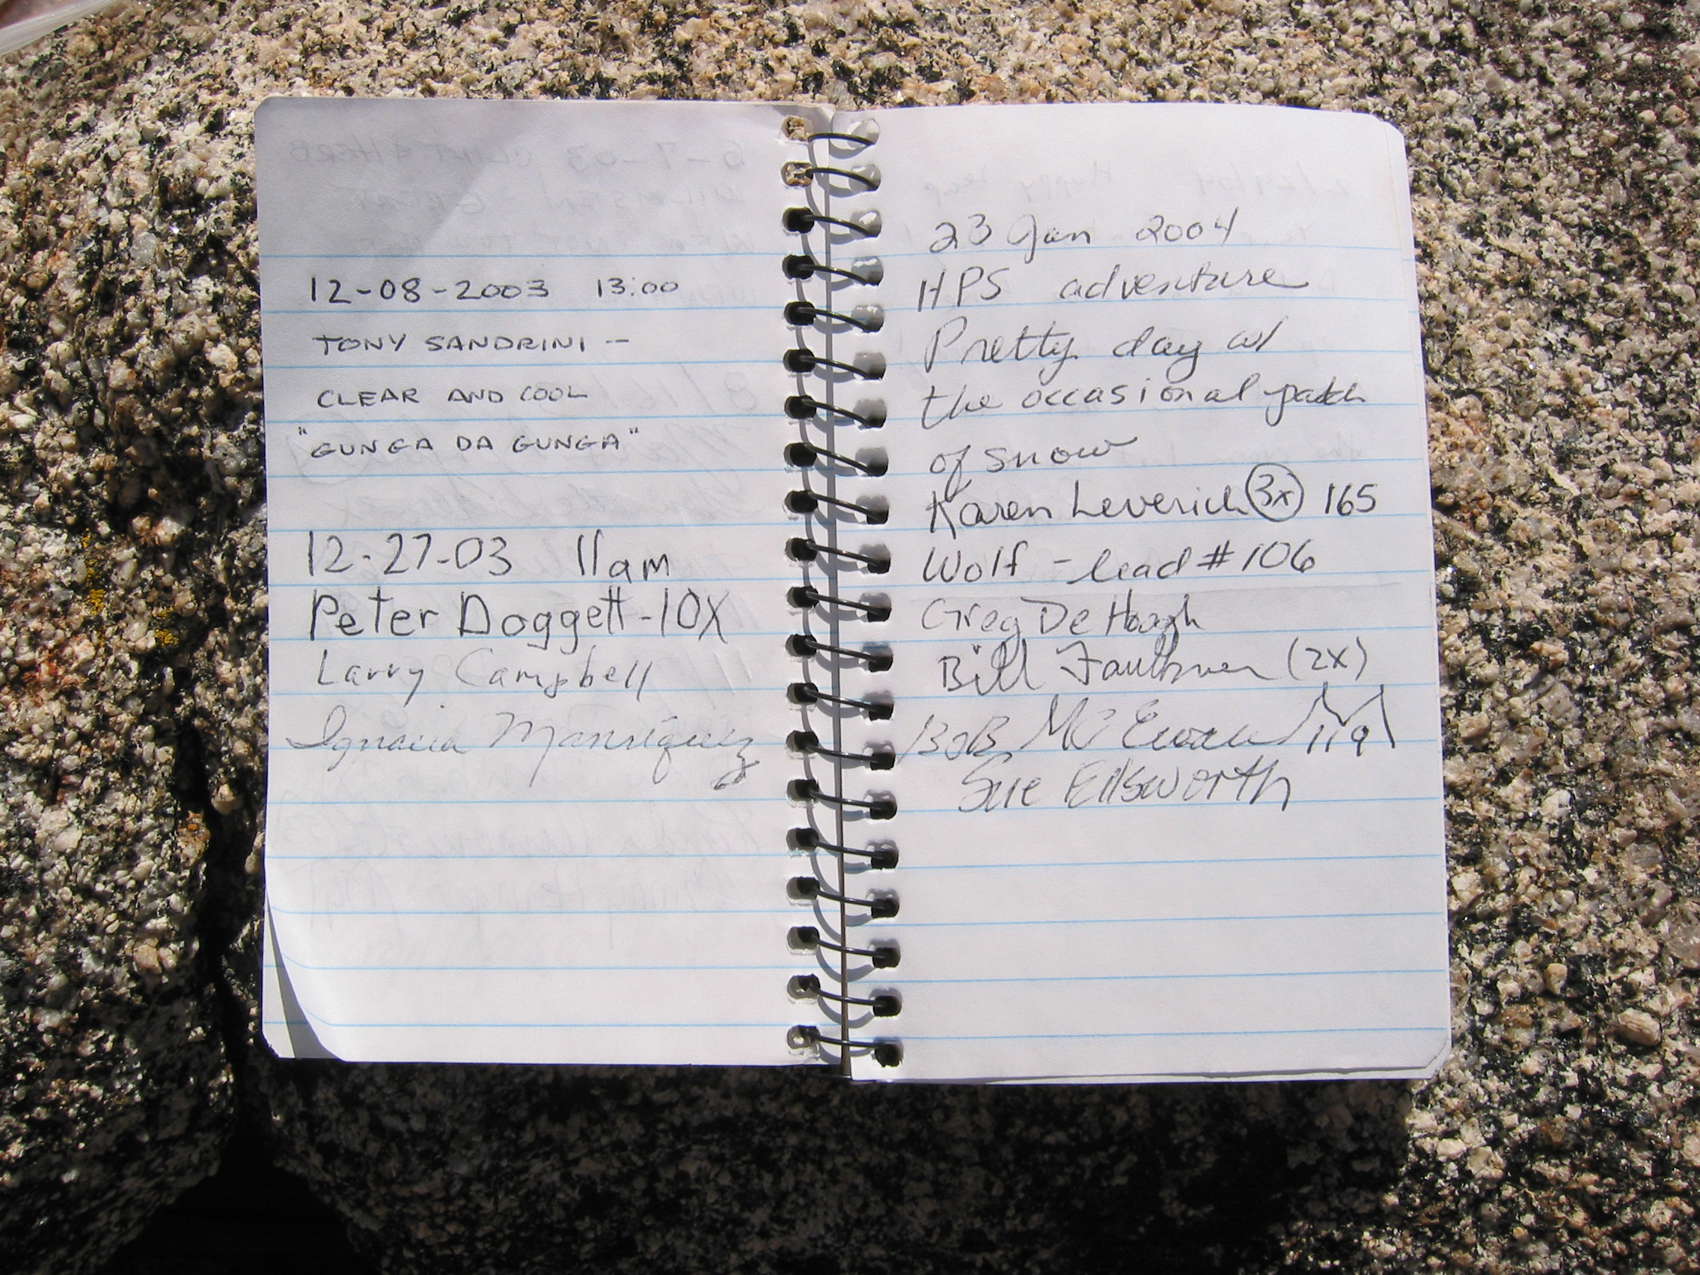 12-08-2003 13:00
TONY SANDRINI –
CLEAR AND COOL
"GUNGA DA GUNGA"
12-27-03 11am
Peter Doggett-10X
Larry Campbell
Ignacia Manríquez
23 Jan 2004
HPS adventure
Pretty day w/
the occasional patch
of snow
Karen Leverich 3x 165
Wolf - lead #106
Greg De Hoogh
Bill Faulkner (2x)
BoB Mc Ewan 119
Sue Ellsworth